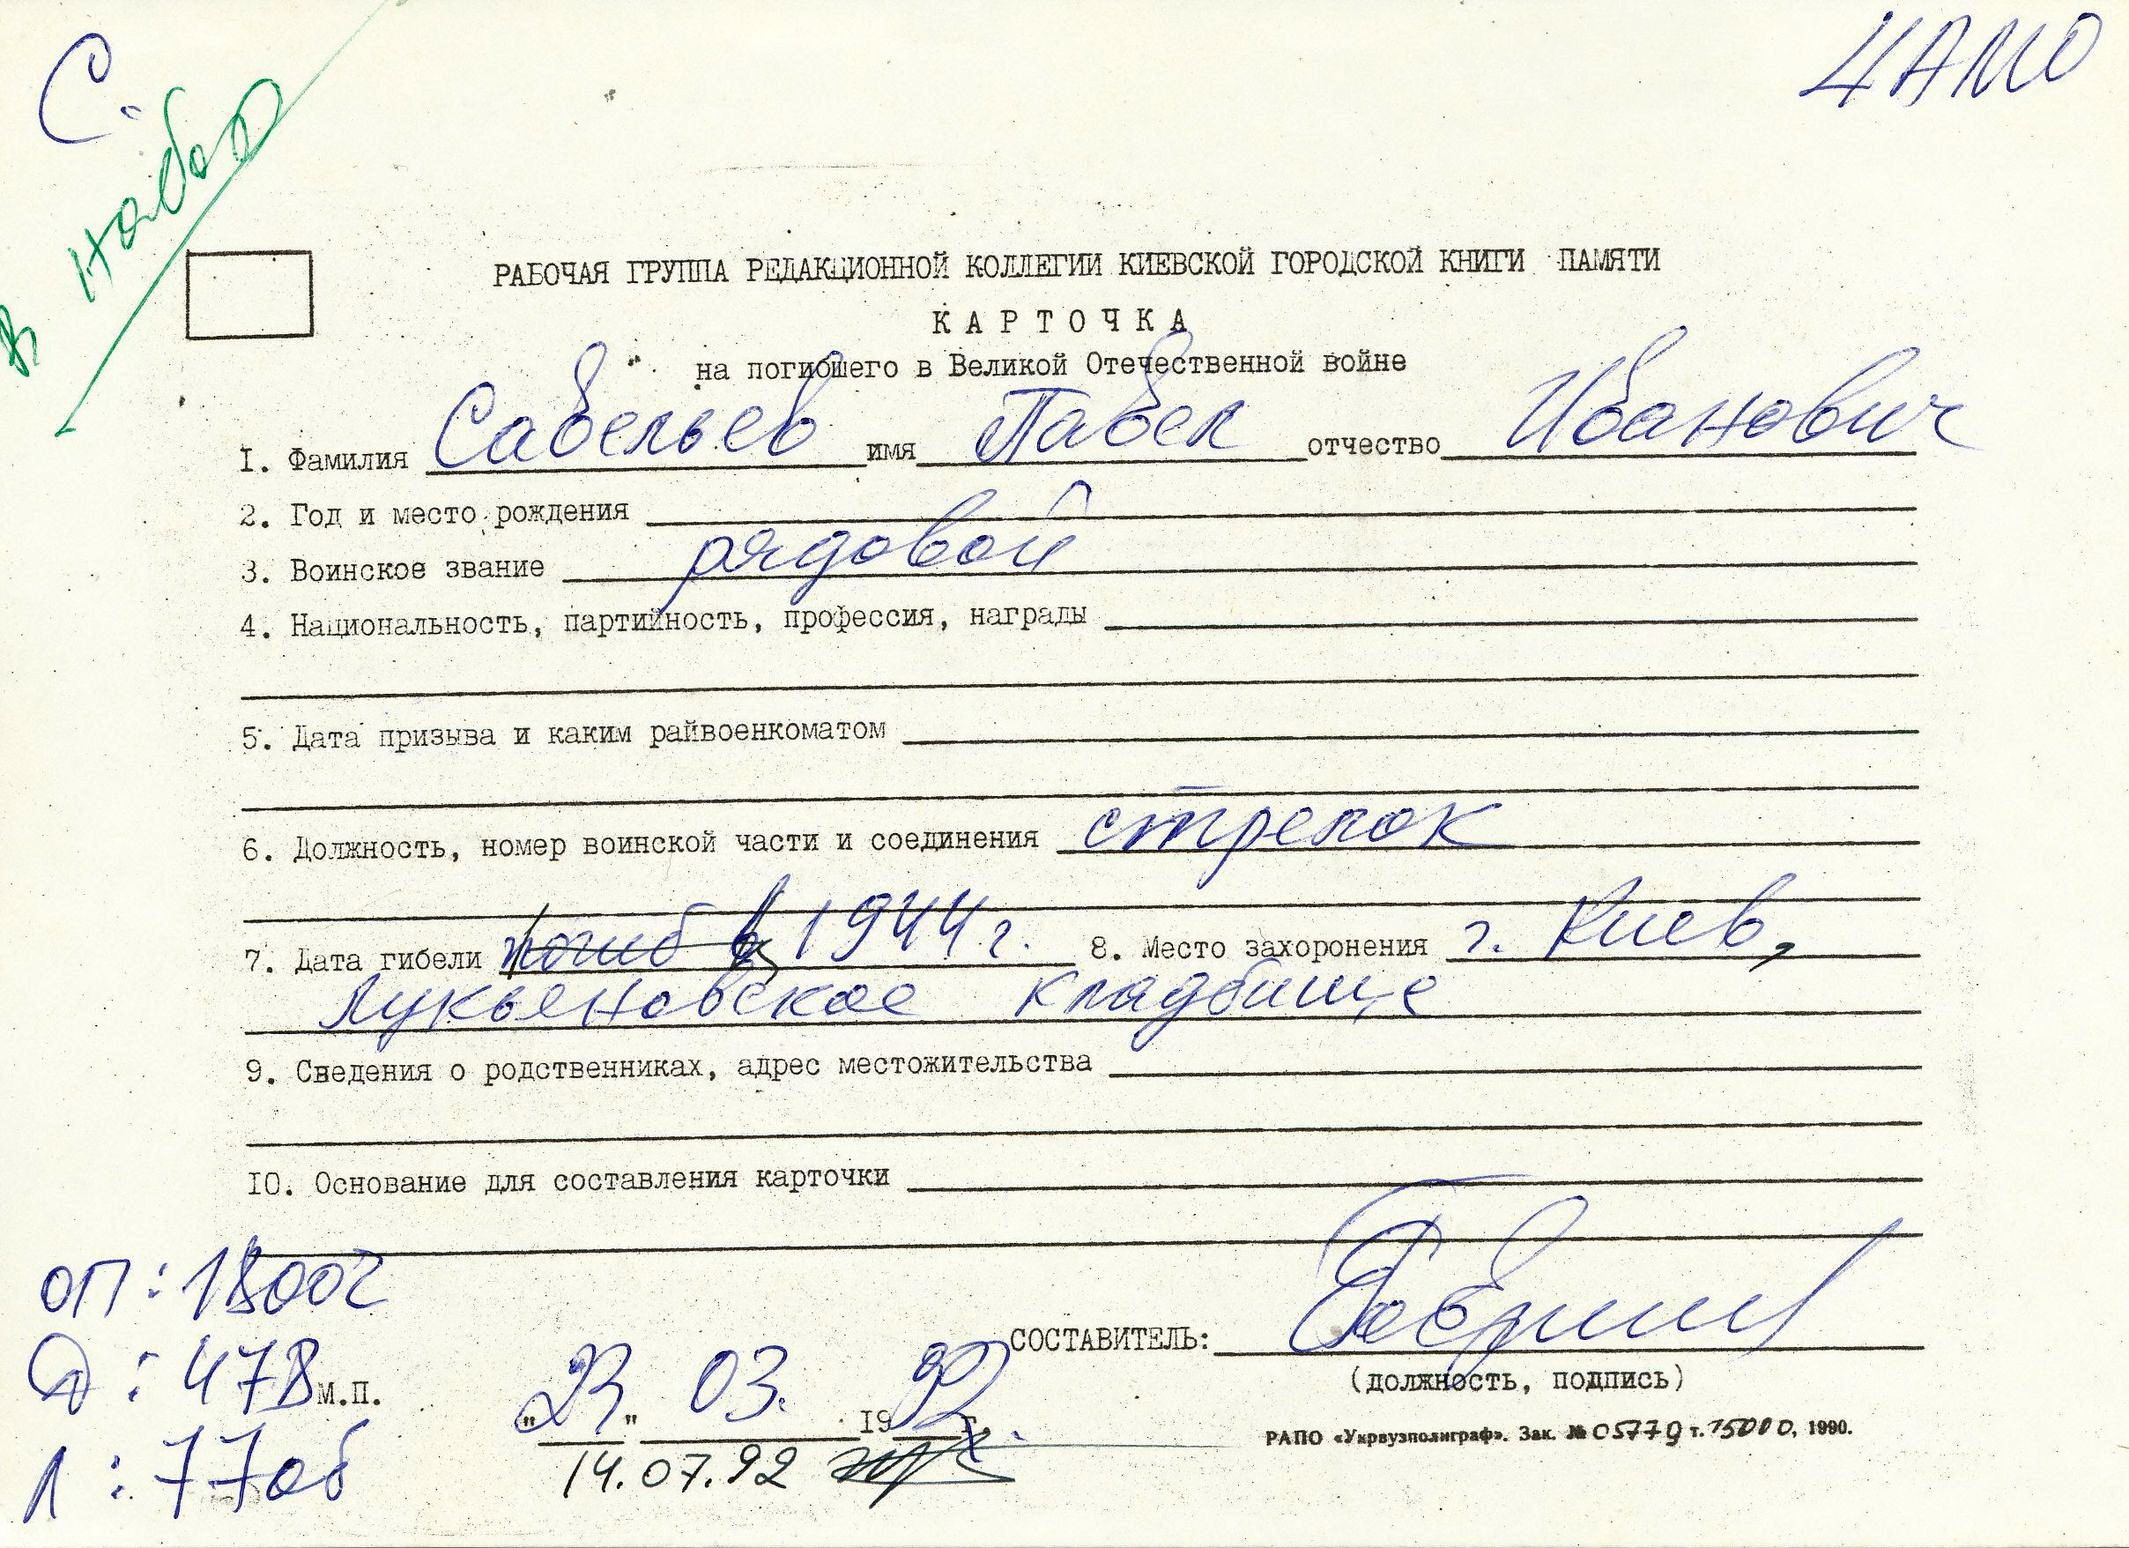 С.
ЦАМО
В набор
РАБОЧАЯ ГРУППА РЕДАКЦИОННОЙ КОЛЛЕГИИ КИЕВСКОЙ ГОРОДСКОЙ КНИГИ ПАМЯТИ
КАРТОЧКА
на погибшего в Великой Отечественной войне
I. Фамилия Савельев имя Павел отчество Иванович
2. Год и место рождения
3. Воинское звание рядовой
4. Национальность, партийность, профессия, награды
5. Дата призыва и каким райвоенкоматом
6. Должность, номер воинской части и соединения стрелок
7. Дата гибели погиб в 1944 г. 8. Место захоронения г. Киев,
Лукьяновское кладбище
9. Сведения о родственниках, адрес местожительства
10. Основание для составления карточки
оп: 18002
СОСТАВИТЕЛЬ:
Д: 478 м.п.
(должность, подпись)
"23" 03. 1992 г.
РАПО «Укрвузполиграф». Зак. № 05779 т. 15000, 1990.
л: 77об
14.07.92